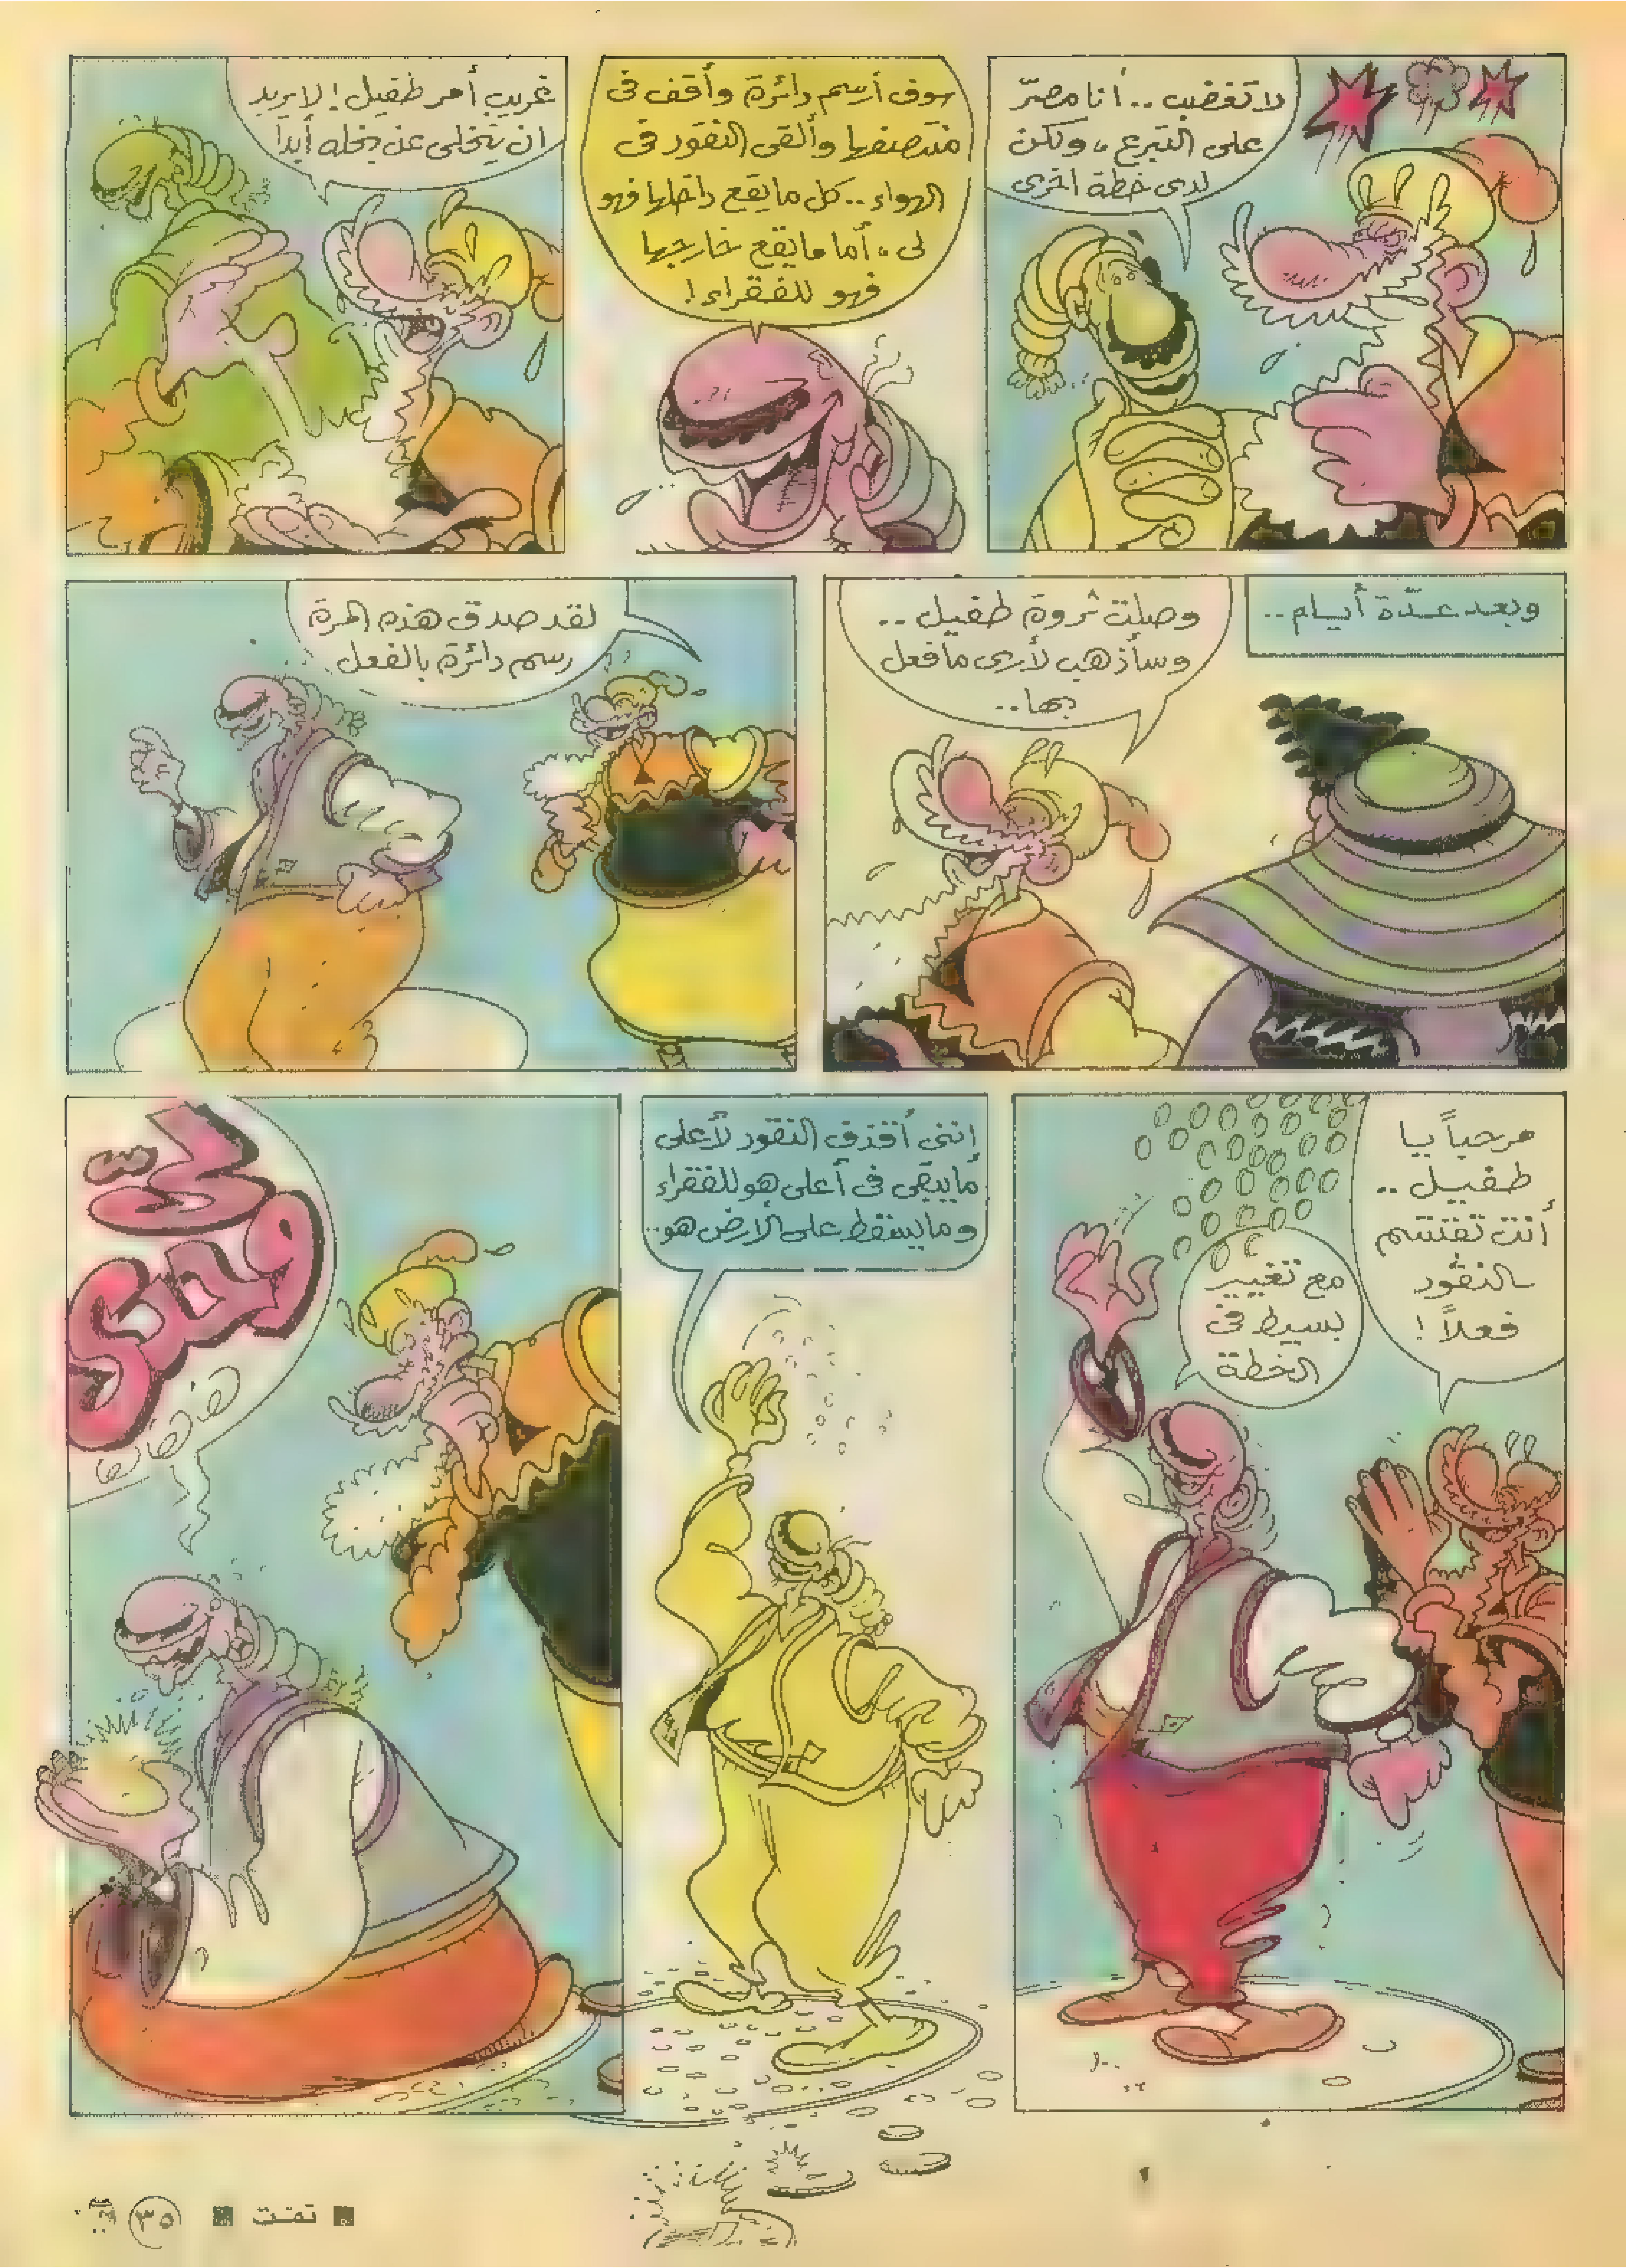 لا تغضب .. أنا مصرّ
على التبرع ، ولكن
لدى خطة أخرى
سوف أرسم دائرة وأقف فى
منتصفها وألقى النقود فى
الهواء .. كل ما يقع داخلها فهو
لى ، أما ما يقع خارجها
فهو للفقراء !
غريب أمر طفيل ! لا يريد
ان يتخلى عن بخله أبداً
وبعد عدّة أيام ..
وصلت ثروة طفيل ..
وسأذهب لأرى ما فعل
بها ..
لقد صدق هذه المرة
رسم دائرة بالفعل
مرحباً يا
طفيل ..
أنت تقتسم
النقود
فعلاً !
مع تغيير
بسيط فى
الخطة
إننى أقذف النقود لأعلى
ما يبقى فى أعلى هو للفقراء
وما يسقط على الأرض هو ..
لى
وحدى
تمت
٣٥